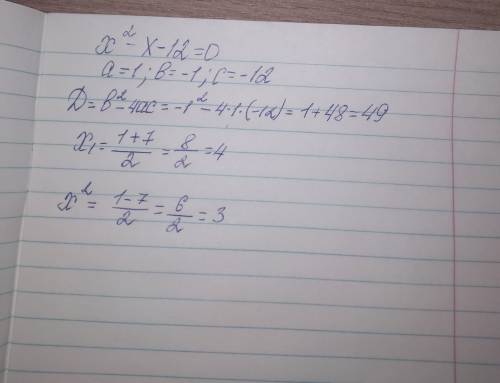 x² - x - 12 = 0
a = 1; b = -1; c = -12
D = b² - 4ac = -1² - 4·1·(-12) = 1 + 48 = 49
x₁ = \frac{1+7}{2} = \frac{8}{2} = 4
x² = \frac{1-7}{2} = \frac{6}{2} = 3